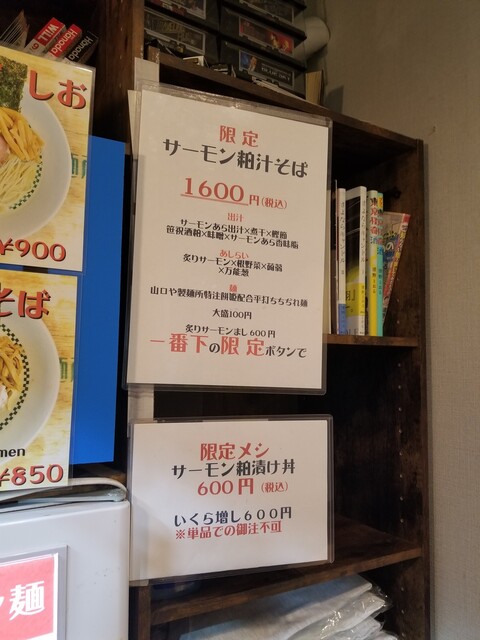 WiLL
Hanada
Hanada
しお
¥900
そば
men
¥850
麺
限定
サーモン粕汁そば
1600円(税込)
出汁
サーモンあら出汁×煮干×鰹節
笹祝酒粕×味噌×サーモンあら香味脂
あしらい
炙りサーモン×根野菜×蒟蒻
×万能葱
麺
山口や製麺所特注餅姫配合平打ちぢれ麺
大盛100円
炙りサーモンまし600円
一番下の限定ボタンで
限定メシ
サーモン粕漬け丼
600円(税込)
いくら増し600円
※単品での御注不可